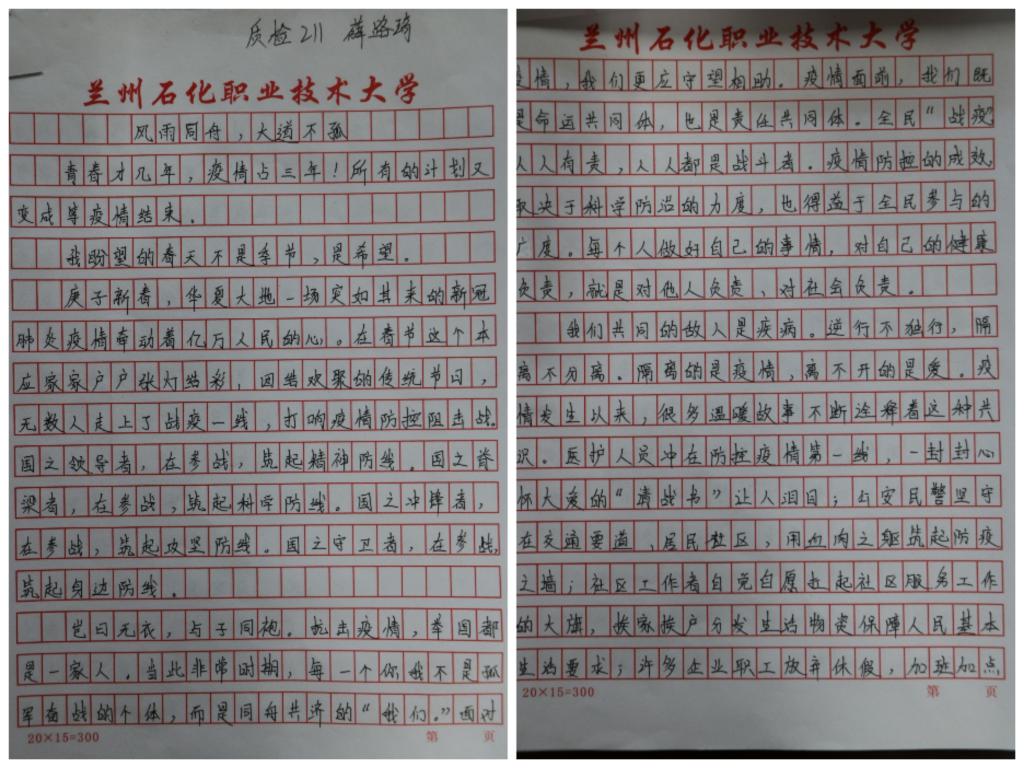 质检211 薛路琦
兰州石化职业技术大学
风雨同舟，大道不孤
青春才几年，疫情占三年！所有的计划又
变成等疫情结束。
我盼望的春天不是季节，是希望。
庚子新春，华夏大地一场突如其来的新冠
肺炎疫情牵动着亿万人民的心。在春节这个本
应家家户户张灯结彩，团结欢聚的传统节日，
无数人走上了战疫一线，打响疫情防控阻击战。
国之领导者，在参战，筑起精神防线。国之脊
梁者，在参战，筑起科学防线。国之冲锋者，
在参战，筑起攻坚防线。国之守卫者，在参战，
筑起身边防线。
岂曰无衣，与子同袍。抗击疫情，举国都
是一家人。当此非常时期，每一个你我不是孤
军奋战的个体，而是同舟共济的“我们。”面对
20×15=300 第 页
兰州石化职业技术大学
疫情，我们更应守望相助。疫情面前，我们既
是命运共同体，也是责任共同体。全民“战疫”
人人有责，人人都是战斗者。疫情防控的成效
取决于科学防治的力度，也得益于全民参与的
广度。每个人做好自己的事情，对自己的健康
负责，就是对他人负责、对社会负责。
我们共同的敌人是疾病。逆行不独行，隔
离不分离。隔离的是疫情，离不开的是爱。疫
情发生以来，很多温暖故事不断诠释着这种共
识。医护人员冲在防控疫情第一线，一封封心
怀大爱的“请战书”让人泪目；公安民警坚守
在交通要道、居民社区，用血肉之躯筑起防疫
之墙；社区工作者自觉自愿扛起社区服务工作
的大旗，挨家挨户分发生活物资保障人民基本
生活要求；许多企业职工放弃休假，加班加点
20×15=300 第 页